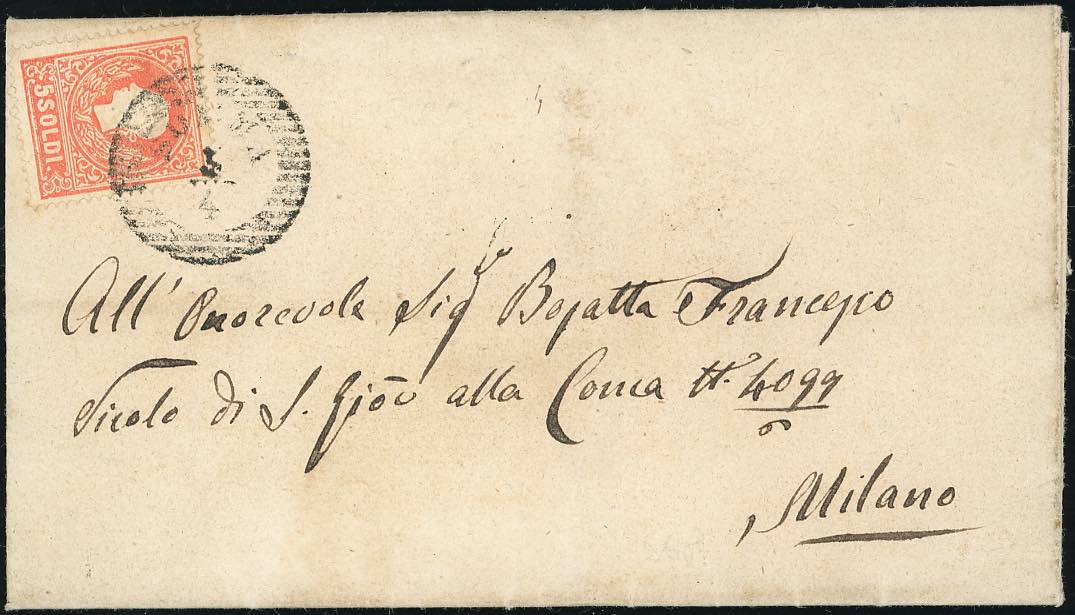 5 SOLDI
4
All' Onorevole Sigr Bojatta Francesco
Vicolo di S. Giōv alla Conca N. 4099
Milano